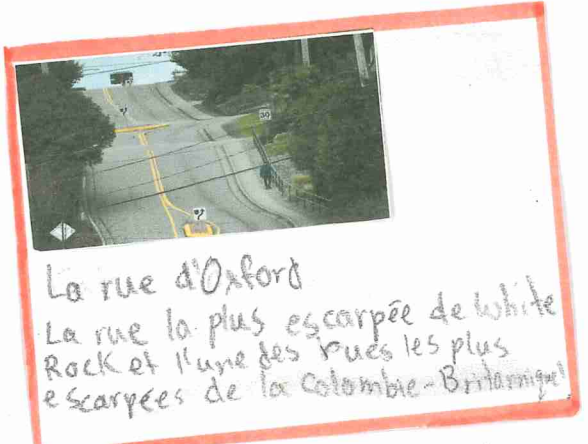 30
La rue d'Oxford
La rue la plus escarpée de White
Rock et l'une des rues les plus
escarpées de la Colombie-Britannique!